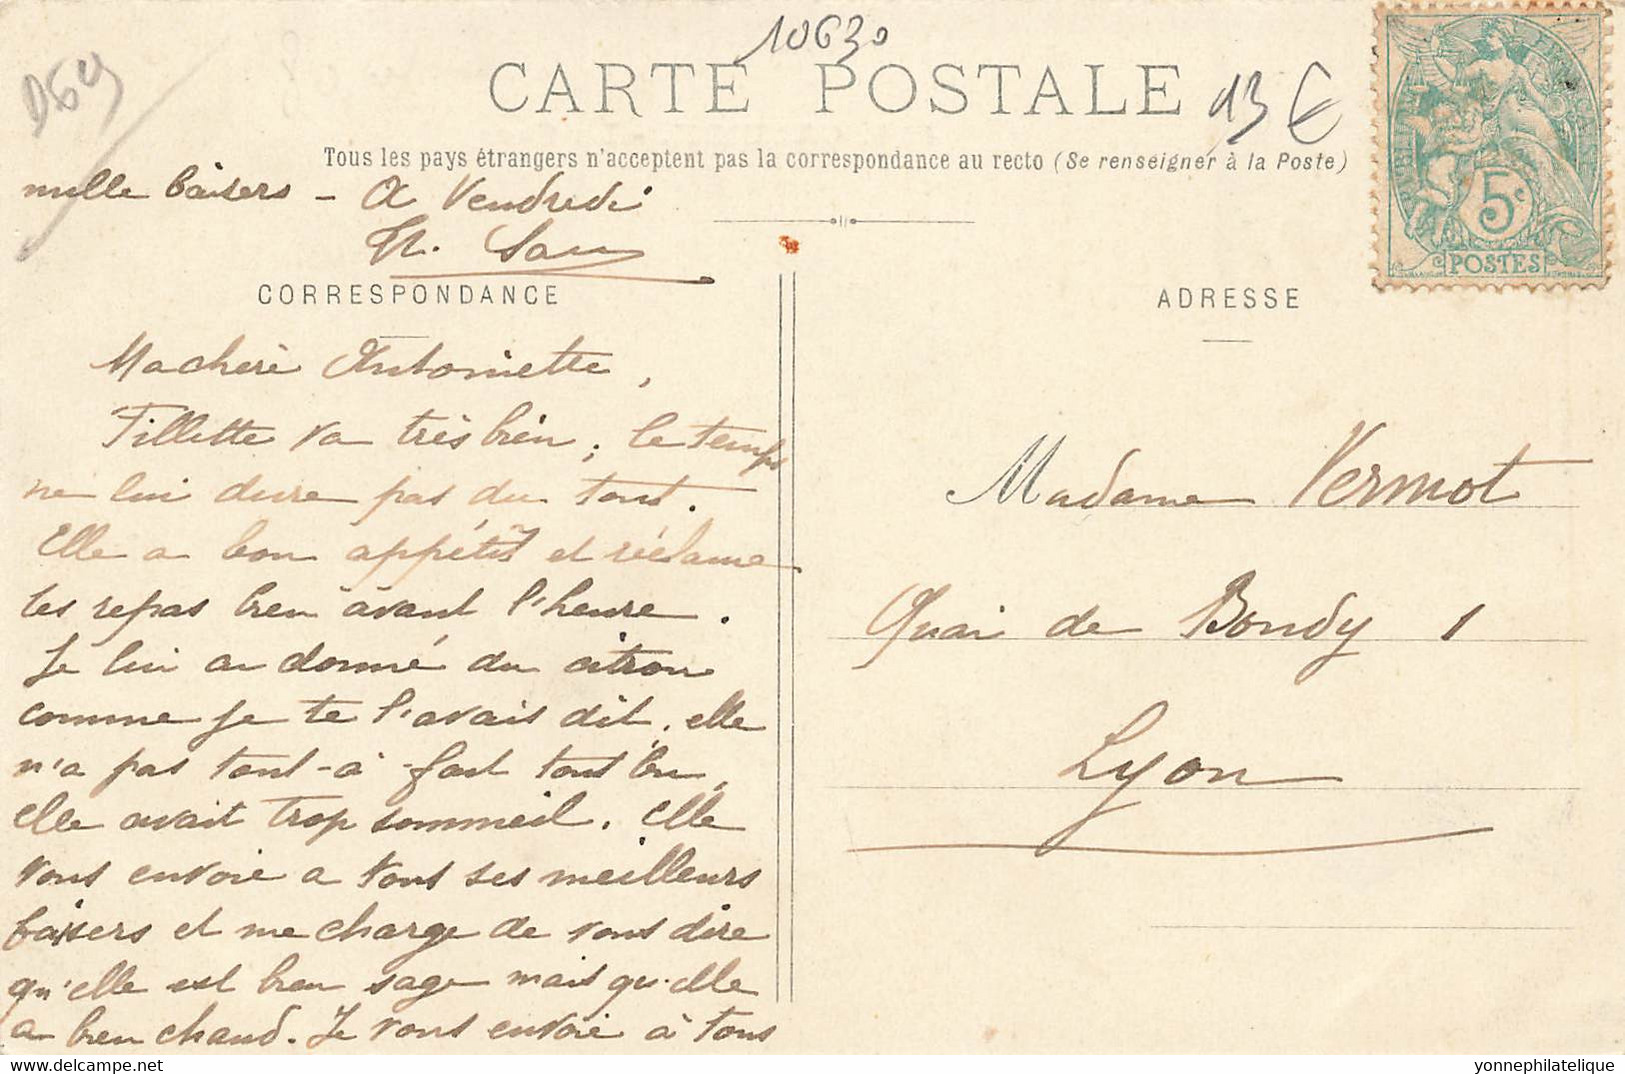 D64
10630
CARTE POSTALE
13 €
Tous les pays étrangers n'acceptent pas la correspondance au recto (Se renseigner à la Poste)
5c
POSTES
CORRESPONDANCE
Machère Antoinette,
Fillette va très bien ; le temps
ne lui dure pas du tout.
Elle a bon appétit et réclame
les repas bien avant l'heure.
Je lui ai donné du citron
comme je te l'avais dit, elle
n'a pas tout-à-fait tout bu,
elle avait trop sommeil. Elle
vous envoie a tous ses meilleurs
baisers et me charge de vous dire
qu'elle est bien sage mais qu'elle
a bien chaud. Je vous envoie à tous
mille baisers - A Vendredi
ADRESSE
Madame Vermot
Quai de Bondy 1
Lyon
www.delcampe.net
yonnephilatelique